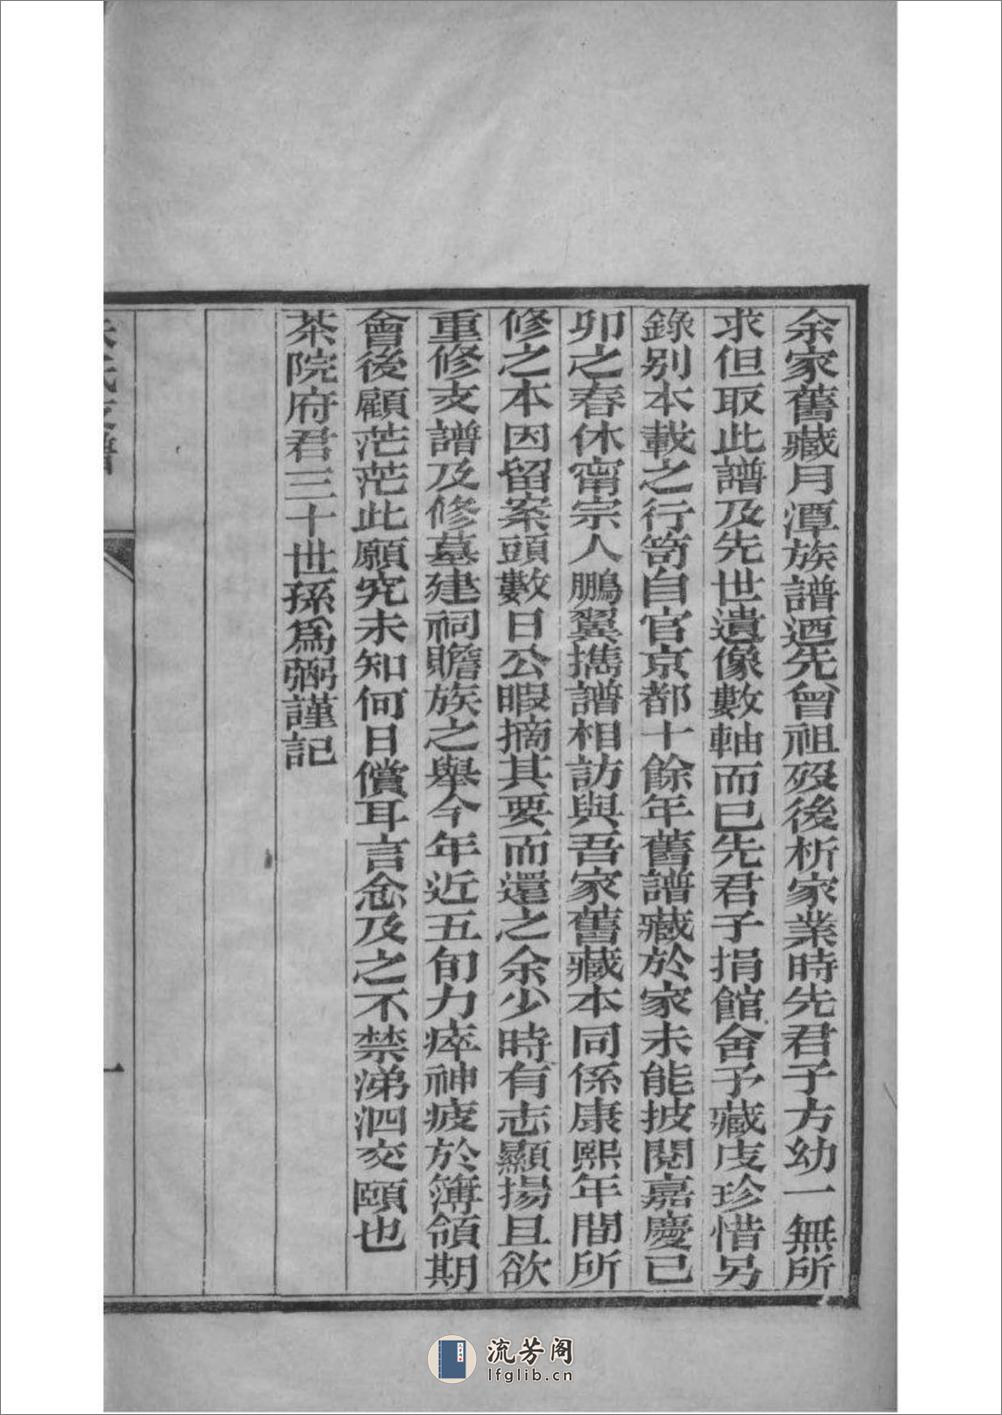 余家舊藏月潭族譜迺先曾祖歿後析家業時先君子方幼一無所
求但取此譜及先世遺像數軸而已先君子捐館舍予藏庋珍惜另
錄別本載之行笥自官京都十餘年舊譜藏於家未能披閱嘉慶已
卯之春休甯宗人鵬翼攜譜相訪與吾家舊藏本同係康熙年間所
修之本因留案頭數日公暇摘其要而還之余少時有志顯揚且欲
重修支譜及修墓建祠贍族之舉今年近五旬力瘁神疲於簿領期
會後顧茫茫此願究未知何日償耳言念及之不禁涕泗交頤也
茶院府君三十世孫為弼謹記
一
流芳阁
lfglib.cn